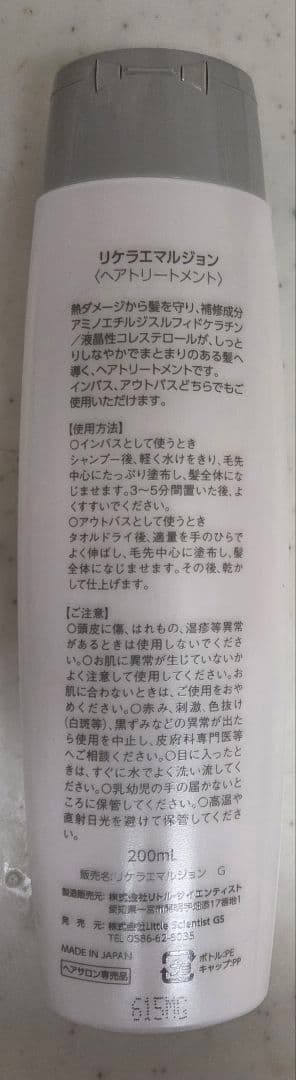 リケラエマルジョン
〈ヘアトリートメント〉
熱ダメージから髪を守り、補修成分
アミノエチルジスルフィドケラチン
/液晶性コレステロールが、しっと
りしなやかでまとまりのある髪へ
導く、ヘアトリートメントです。
インバス、アウトバスどちらでもご
使用いただけます。
【使用方法】
○インバスとして使うとき
シャンプー後、軽く水けをきり、毛先
中心にたっぷり塗布し、髪全体にな
じませます。3～5分間置いた後、よ
くすすいでください。
○アウトバスとして使うとき
タオルドライ後、適量を手のひらで
よく伸ばし、毛先中心に塗布し、髪
全体になじませます。その後、乾か
して仕上げます。
【ご注意】
○頭皮に傷、はれもの、湿疹等異常
があるときは使用しないでくださ
い。○お肌に異常が生じていないか
よく注意して使用してください。お
肌に合わないときは、ご使用をおや
めください。○赤み、刺激、色抜け
(白斑等)、黒ずみなどの異常が出た
ら使用を中止し、皮膚科専門医等
へご相談ください。○目に入ったと
きは、すぐに水でよく洗い流してく
ださい。○乳幼児の手の届かないと
ころに保管してください。○高温や
直射日光を避けて保管してくださ
い。
200mL
販売名:リケラエマルジョン G
製造販売元: 株式会社リトル・サイエンティスト
愛知県一宮市開明字畑添17番地1
発売元: 株式会社Little Scientist GS
TEL 0586-62-5035
MADE IN JAPAN
ヘアサロン専売品
ボトル:PE
キャップ:PP
615MG